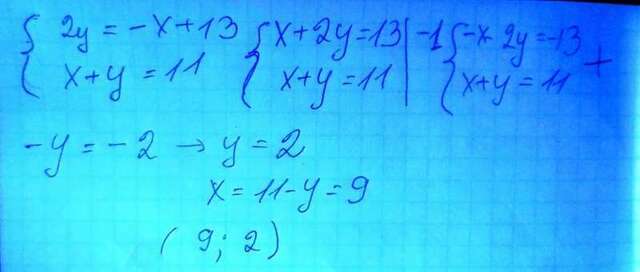 { 2y = -x+13 { x+2y=13 | -1 { -x-2y=-13 +
{ x+y = 11 { x+y=11 | { x+y = 11
-y = -2 → y = 2
x = 11-y = 9
( 9; 2 )